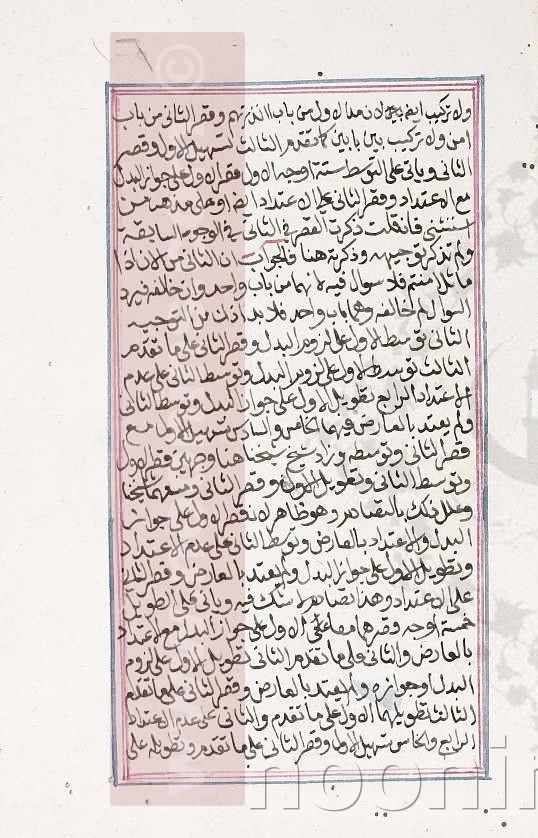 وله تركيب ايضا لان هذا الاول من باب اانذرتهم وقصر الثاني من باب
امن وله تركيب بين بابين كما تقدم الثالث تسهيل الاول وقصر
الثاني وياتي على التوسط ستة اوجه الاول قصر الاول على جواز البدل
مع الاعتداد وقصر الثاني على الاعتداد او على مذهب من
استثنى فان قلت ذكرت القصر في الثاني في الوجوه السابقة
ولم تذكر توجيهه وذكرته هنا فالجواب ان الثاني من الاذا
ماثل المتقدم فلا سوال فيه لانهما من باب واحد وان خالفه فيرد
السوال لم خالفه وهما باب واحد فلا بد اذ ذاك من التوجيه
الثاني توسط الاول على لزوم البدل وقصر الثاني على ما تقدم
الثالث توسط الاول على لزوم البدل وتوسط الثاني على عدم
الاعتداد الرابع تطويل الاول على جواز البدل وتوسط الثاني
ولم يعتد بالعارض فيهما الخامس والسادس تسهيل الاول مع
قصر الثاني وتوسطه وزاد شيخ شيخنا هنا وجهين قصر الاول
وتوسط الثاني وتطويل الاول وقصر الثاني ومنعهما شيخنا
وعلل ذلك بالتصادم وهو ظاهر لان قصر الاول على جواز
البدل والاعتداد بالعارض وتوسط الثاني على عدم الاعتداد
وتطويل الاول على جواز البدل ولم يعتد بالعارض وقصر الثاني
على الاعتداد وهذا تصادم لا شك فيه وياتي على الطويل
خمسة اوجه وقصرهما معا على الاول على جواز البدل مع الاعتداد
بالعارض والثاني على ما تقدم الثاني تطويل الاول على لزوم
البدل او جوازه ولم يعتد بالعارض وقصر الثاني على ما تقدم
الثالث تطويلهما الاول على ما تقدم والثاني على عدم الاعتداد
الرابع والخامس تسهيل الاول وقصر الثاني على ما تقدم وتطويله على
noonin